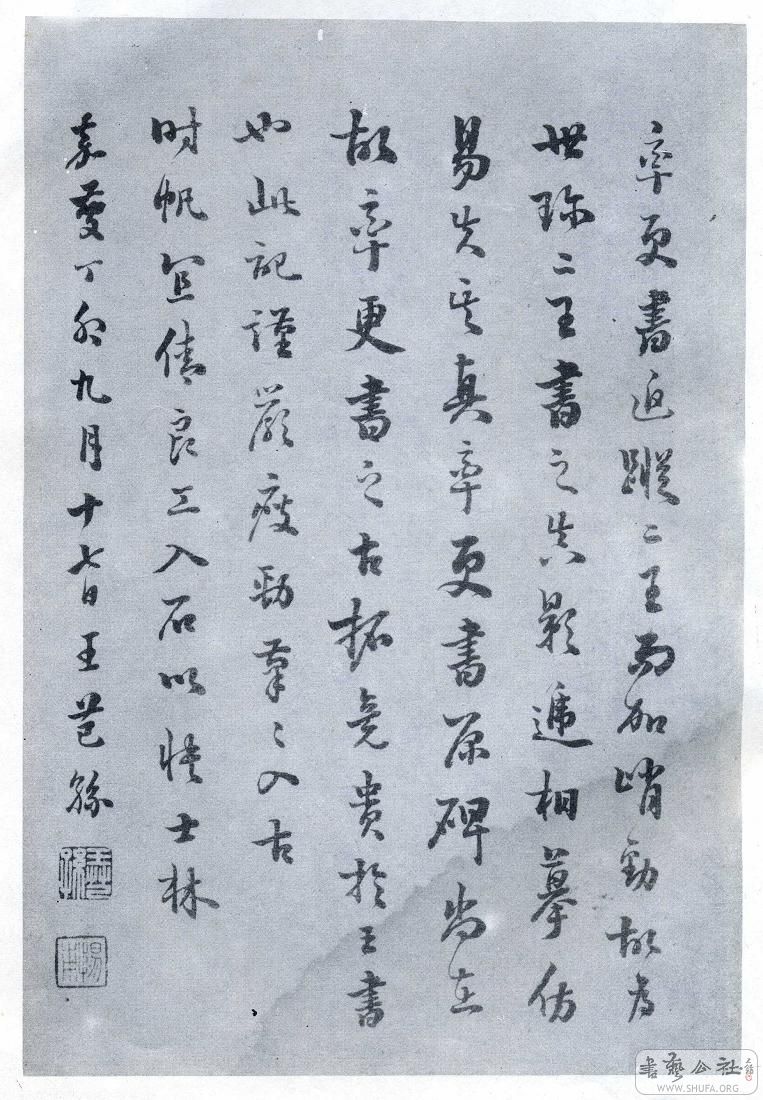 率更書追蹤二王而加峭勁故為
世珍二王書之真影遞相摹仿
易失其真率更書原碑尚在
故率更書之古拓竟貴於王書
也此記謹嚴疲勁筆々入古
时帆宜倩良工入石以快士林
嘉慶丁卯九月十七日王芑孫
王芑孫
書藝公社
WWW.SHUFA.ORG